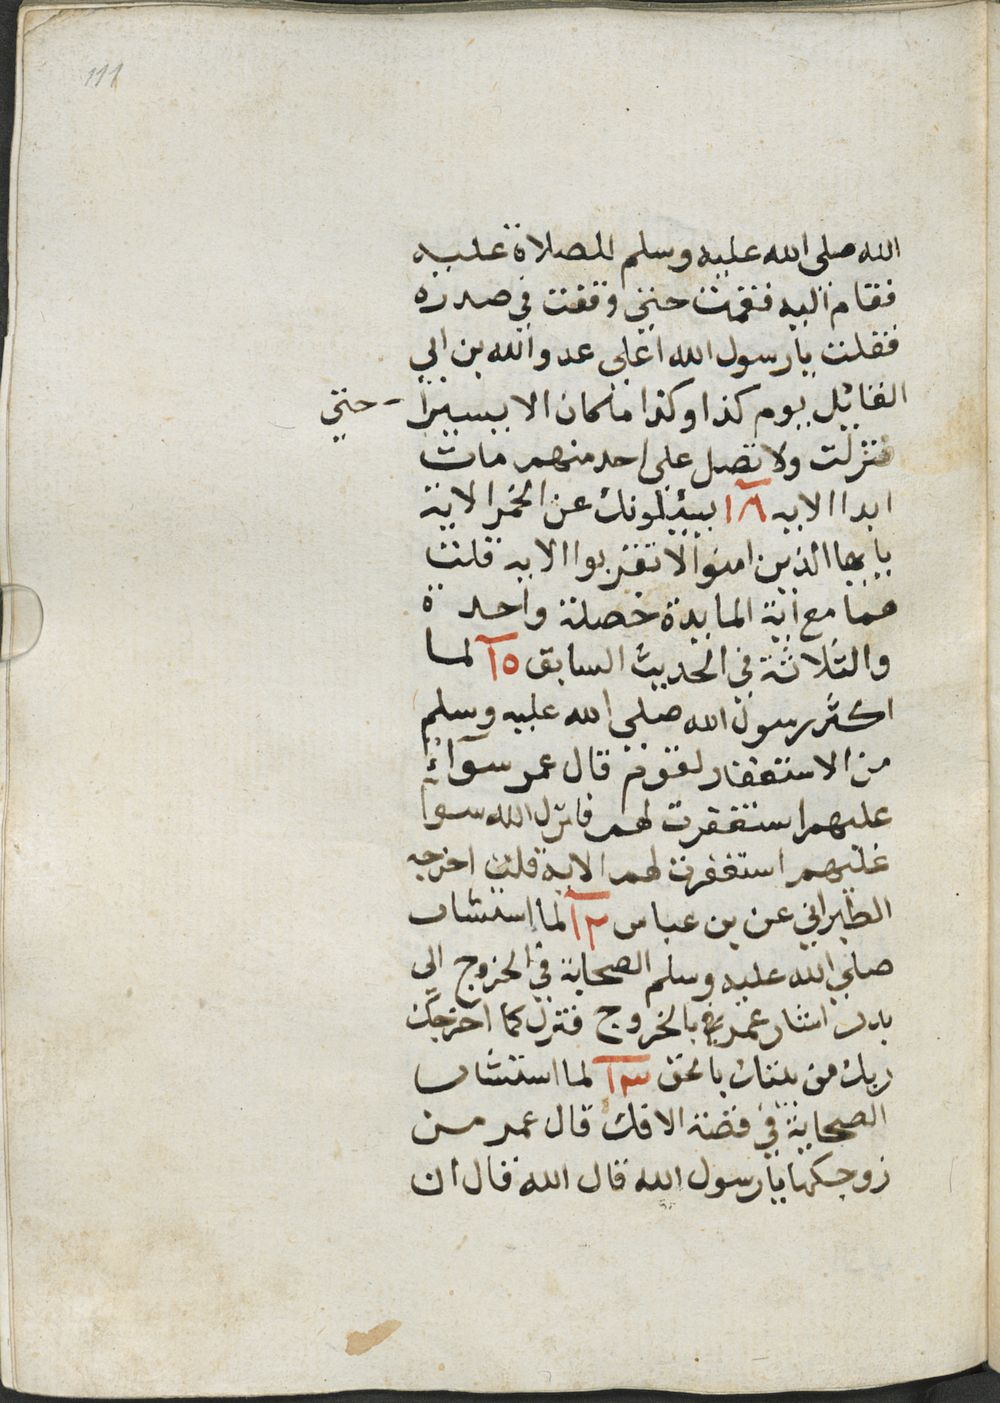 111
الله صلى الله عليه وسلم للصلاة عليه
فقام اليه فقمت حتى وقفت في صدره
فقلت يا رسول الله اعلى عدو الله بن ابي
القايل يوم كذا وكذا ما كان الا يسيرا - حتى
نزلت ولا تصل على احد منهم مات
ابدا الايه ١٨ يسئلونك عن الخمر الاية
يا يها الذين امنوا لا تقربوا الايه قلت
هما مع اية المايدة خصلة واحدة
والثلاثة في الحديث السابق ١٥ لما
اكثر رسول الله صلى الله عليه وسلم
من الاستغفار لقوم قال عمر سواء
عليهم استغفرت لهم فانزل الله سوا
عليهم استغفرت لهم الاية قلت اخرجه
الطبراني عن بن عباس لما استشار
صلى الله عليه وسلم الصحابة في الخروج الى
بدر اشار عمر بالخروج فنزل كما اخرجك
ربك من بيتك بالحق لما استشار
الصحابة في قصة الافك قال عمر من
زوجكها يا رسول الله قال الله قال ان